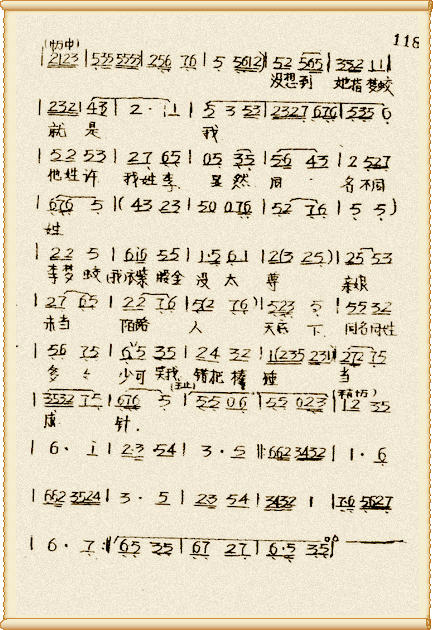 118
(中)
2123 | 535 555 | 256 76 | 5 5612 | 52 565 | 332 11 |
没想到 她指梦蛟
232 | 43 | 2 · 11 | 5 3 53 | 2327 676 | 535 6
就是 我
| 52 53 | 27 65 | 05 35 | 56 43 | 2 527
他姓许 我姓李 虽然同 名不同
| 676 5 | ( 43 23 | 50 076 | 52 76 | 5 5 )
姓
| 22 5 | 616 55 | 1·561 | 2(3 25) | 25 53
李梦蛟 没太尊 亲娘
| 27 65 | 22 76 | 5(2 76) | 523 5 | 55 32
未当 陌路人 天底下 同名同姓
| 56 75 | 65 35 | 24 32 | 1(235 231) | 272 75
多 少可笑我 错把棒锤 当
| 3532 75 | 676 5 | 55 06 | 55 023 | 12 35
针
| 6 · i | 23 54 | 3 · 5 |: 662 3432 | 1 · 6
| 662 3524 | 3 · 5 | 23 54 | 3432 1 | 76 5627
| 6 · 7 :| 65 35 | 67 27 | 6·5 35 |